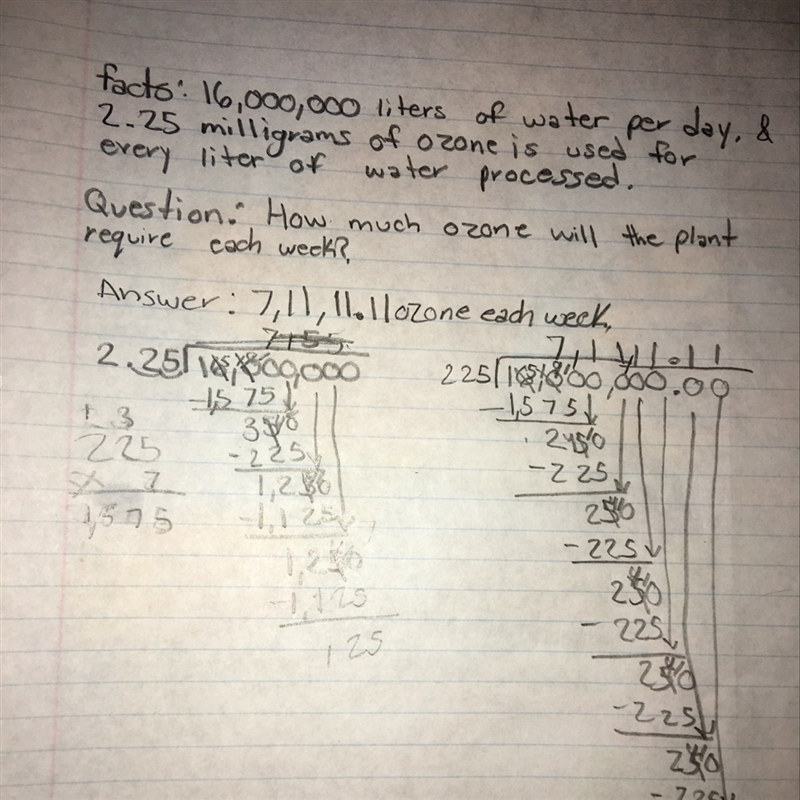 facts: 16,000,000 liters of water per day, &
2.25 milligrams of ozone is used for
every liter of water processed.
Question: How much ozone will the plant
require each week?
Answer: 7,11,11.11 ozone each week.
7155
2.25 000,000
-1,575
-225
-1,125
-1,125
125
1 3
225
x 7
1,575
7,11,11.11
225 00,000.00
-1,575
-225
250
-225
250
-225
250
-225
250
-225